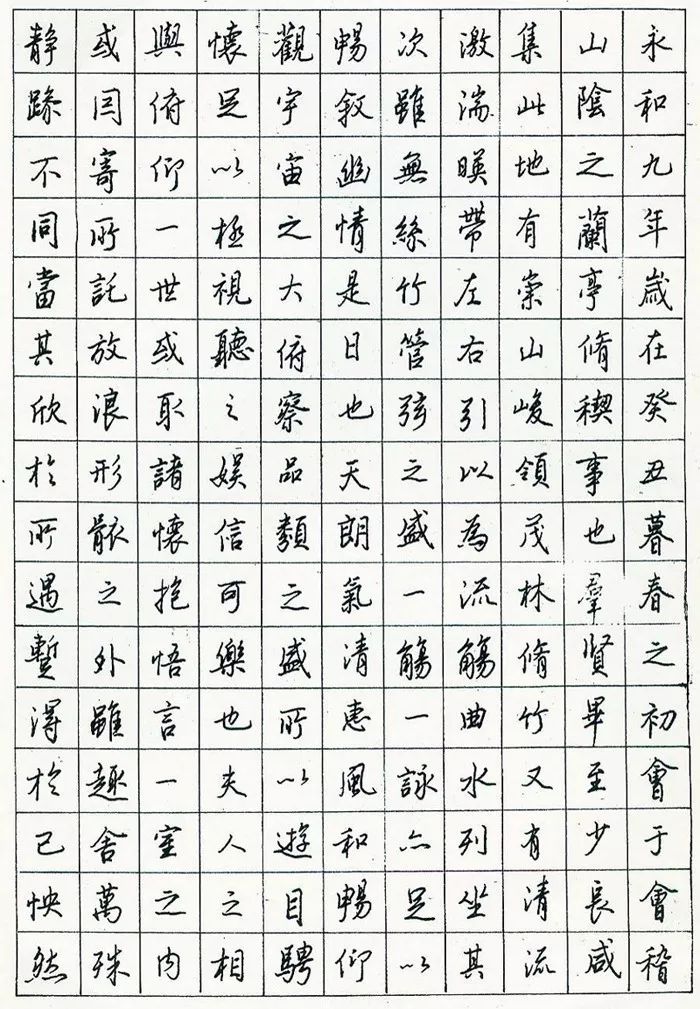 永和九年歲在癸丑暮春之初會于會稽
山陰之蘭亭脩稧事也羣賢畢至少長咸
集此地有崇山峻領茂林脩竹又有清流
激湍暎帶左右引以為流觴曲水列坐其
次雖無絲竹管弦之盛一觴一詠亦足以
暢敘幽情是日也天朗氣清惠風和暢仰
觀宇宙之大俯察品類之盛所以遊目騁
懷足以極視聽之娛信可樂也夫人之相
與俯仰一世或取諸懷抱悟言一室之內
或因寄所託放浪形骸之外雖趣舍萬殊
静躁不同當其欣於所遇蹔得於己怏然